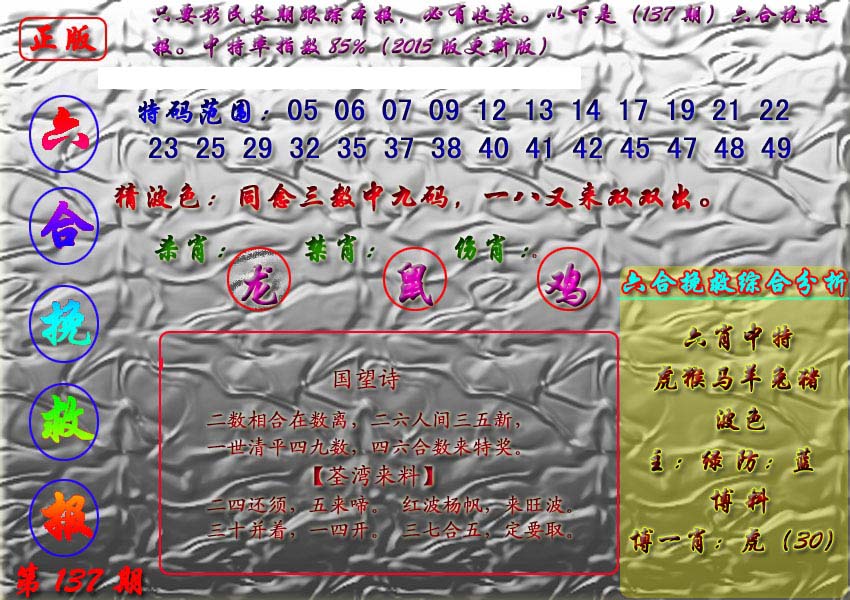 正版
只要彩民长期跟踪本报，必有收获。以下是（137期）六合挽救
报。中特率指数85%（2015版更新版）
六合挽救报
第137期
特码范围：05 06 07 09 12 13 14 17 19 21 22
23 25 29 32 35 37 38 40 41 42 45 47 48 49
猜波色：同念三数中九码，一八又来双双出。
杀肖：龙 禁肖：鼠 伤肖：鸡
国望诗
二数相合在数离，二六人间三五新，
一世清平四九数，四六合数来特奖。
【荃湾来料】
二四还须，五来啼。 红波杨帆，来旺波。
三十并着，一四开。 三七合五，定要取。
六合挽救综合分析
六肖中特
虎猴马羊兔猪
波色
主：绿防：蓝
博料
博一肖：虎（30）